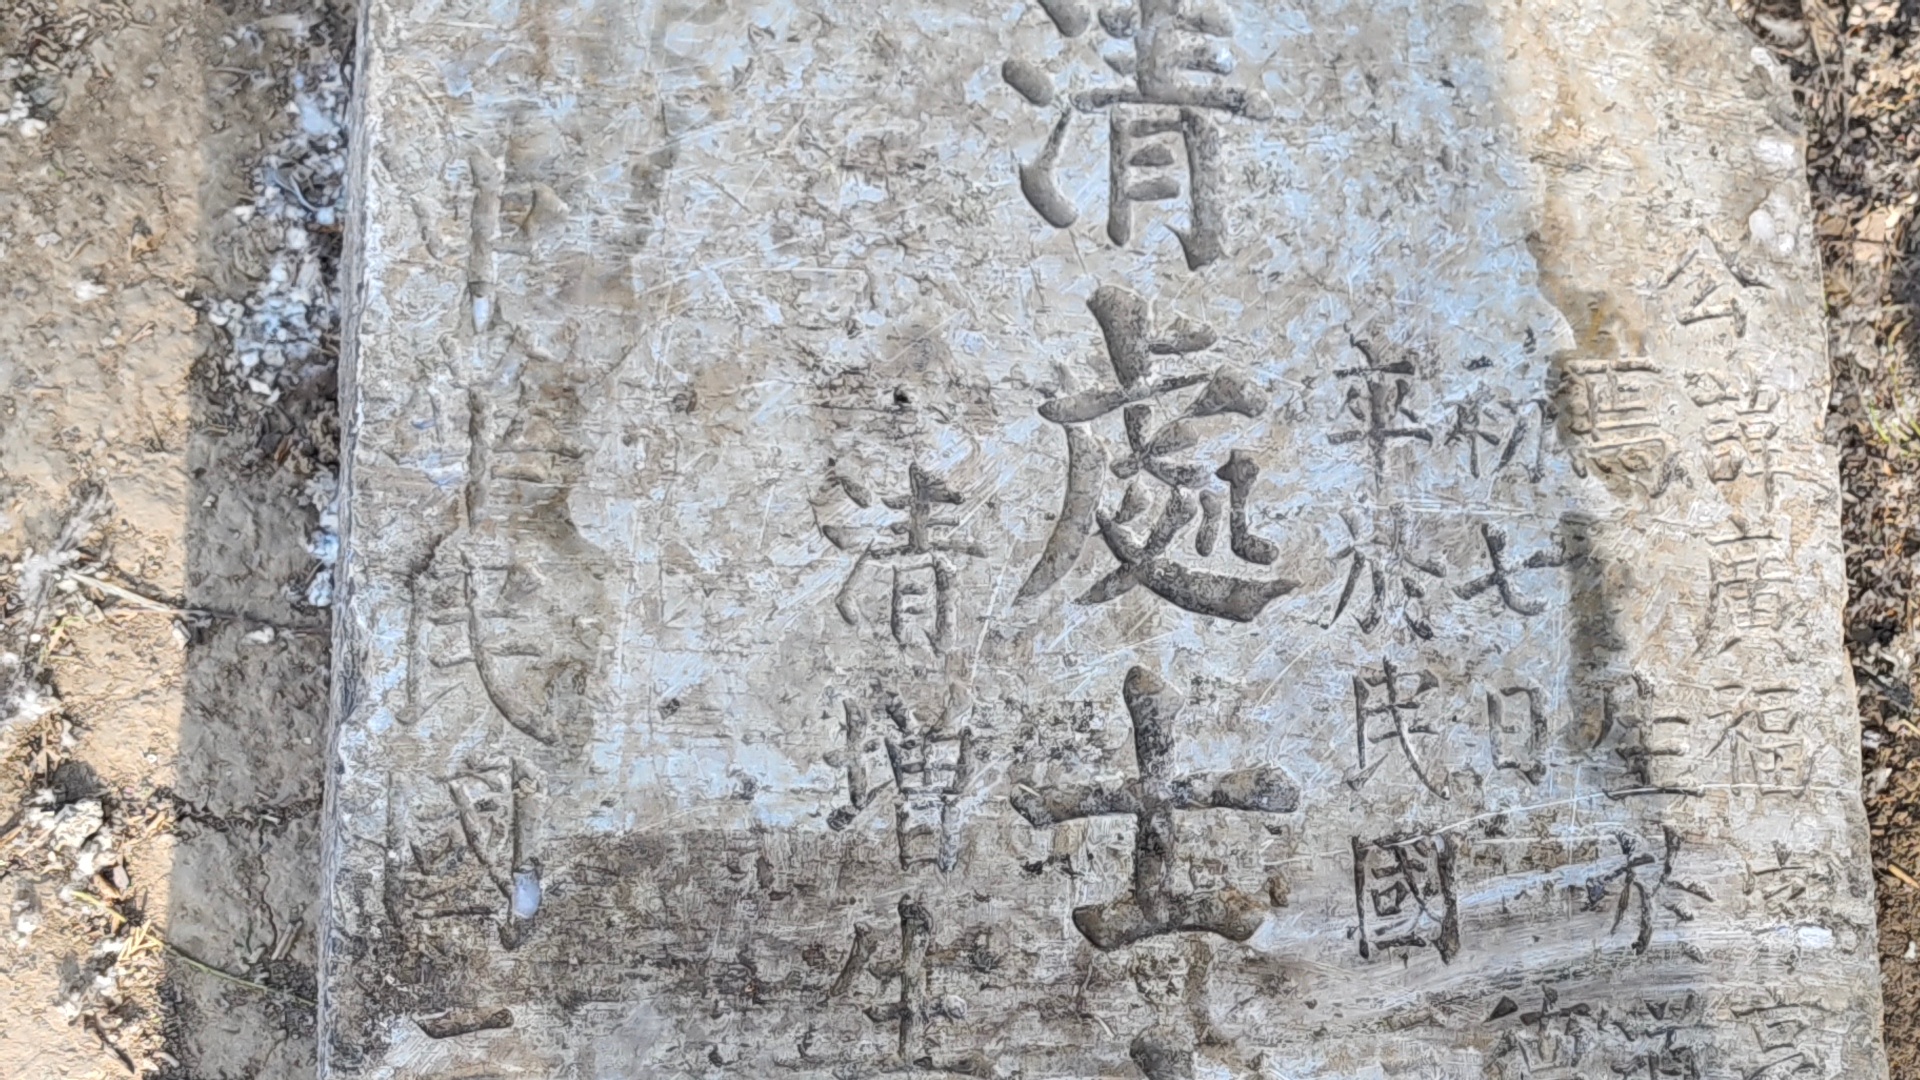 公諱福字
焉生於
初七日
卒於民國
清處士
清增生
中華民國二